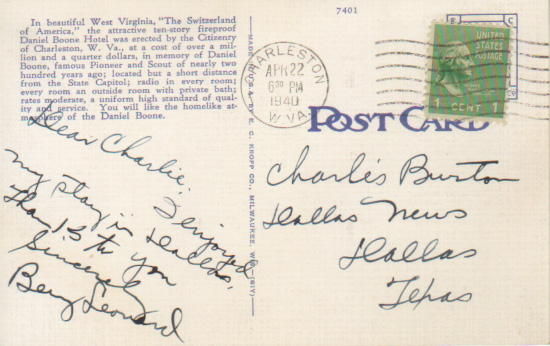 In beautiful West Virginia, "The Switzerland
of America," the attractive ten-story fireproof
Daniel Boone Hotel was erected by the Citizenry
of Charleston, W. Va., at a cost of over a mil-
lion and a quarter dollars, in memory of Daniel
Boone, famous Pioneer and Scout of nearly two
hundred years ago; located but a short distance
from the State Capitol; radio in every room;
every room an outside room with private bath;
rates moderate, a uniform high standard of qual-
ity and service. You will like the homelike at-
mosphere of the Daniel Boone.
Dear Charlie:
I enjoyed
my stay in Dallas,
Thanks to you
Sincerely
Benny Leonard
7401
CHARLESTON
APR 22
630 PM
1940
W.VA.
UNITED
STATES
POSTAGE
1 CENT 1
POST CARD
Charles Burton
Dallas News
Dallas
Texas